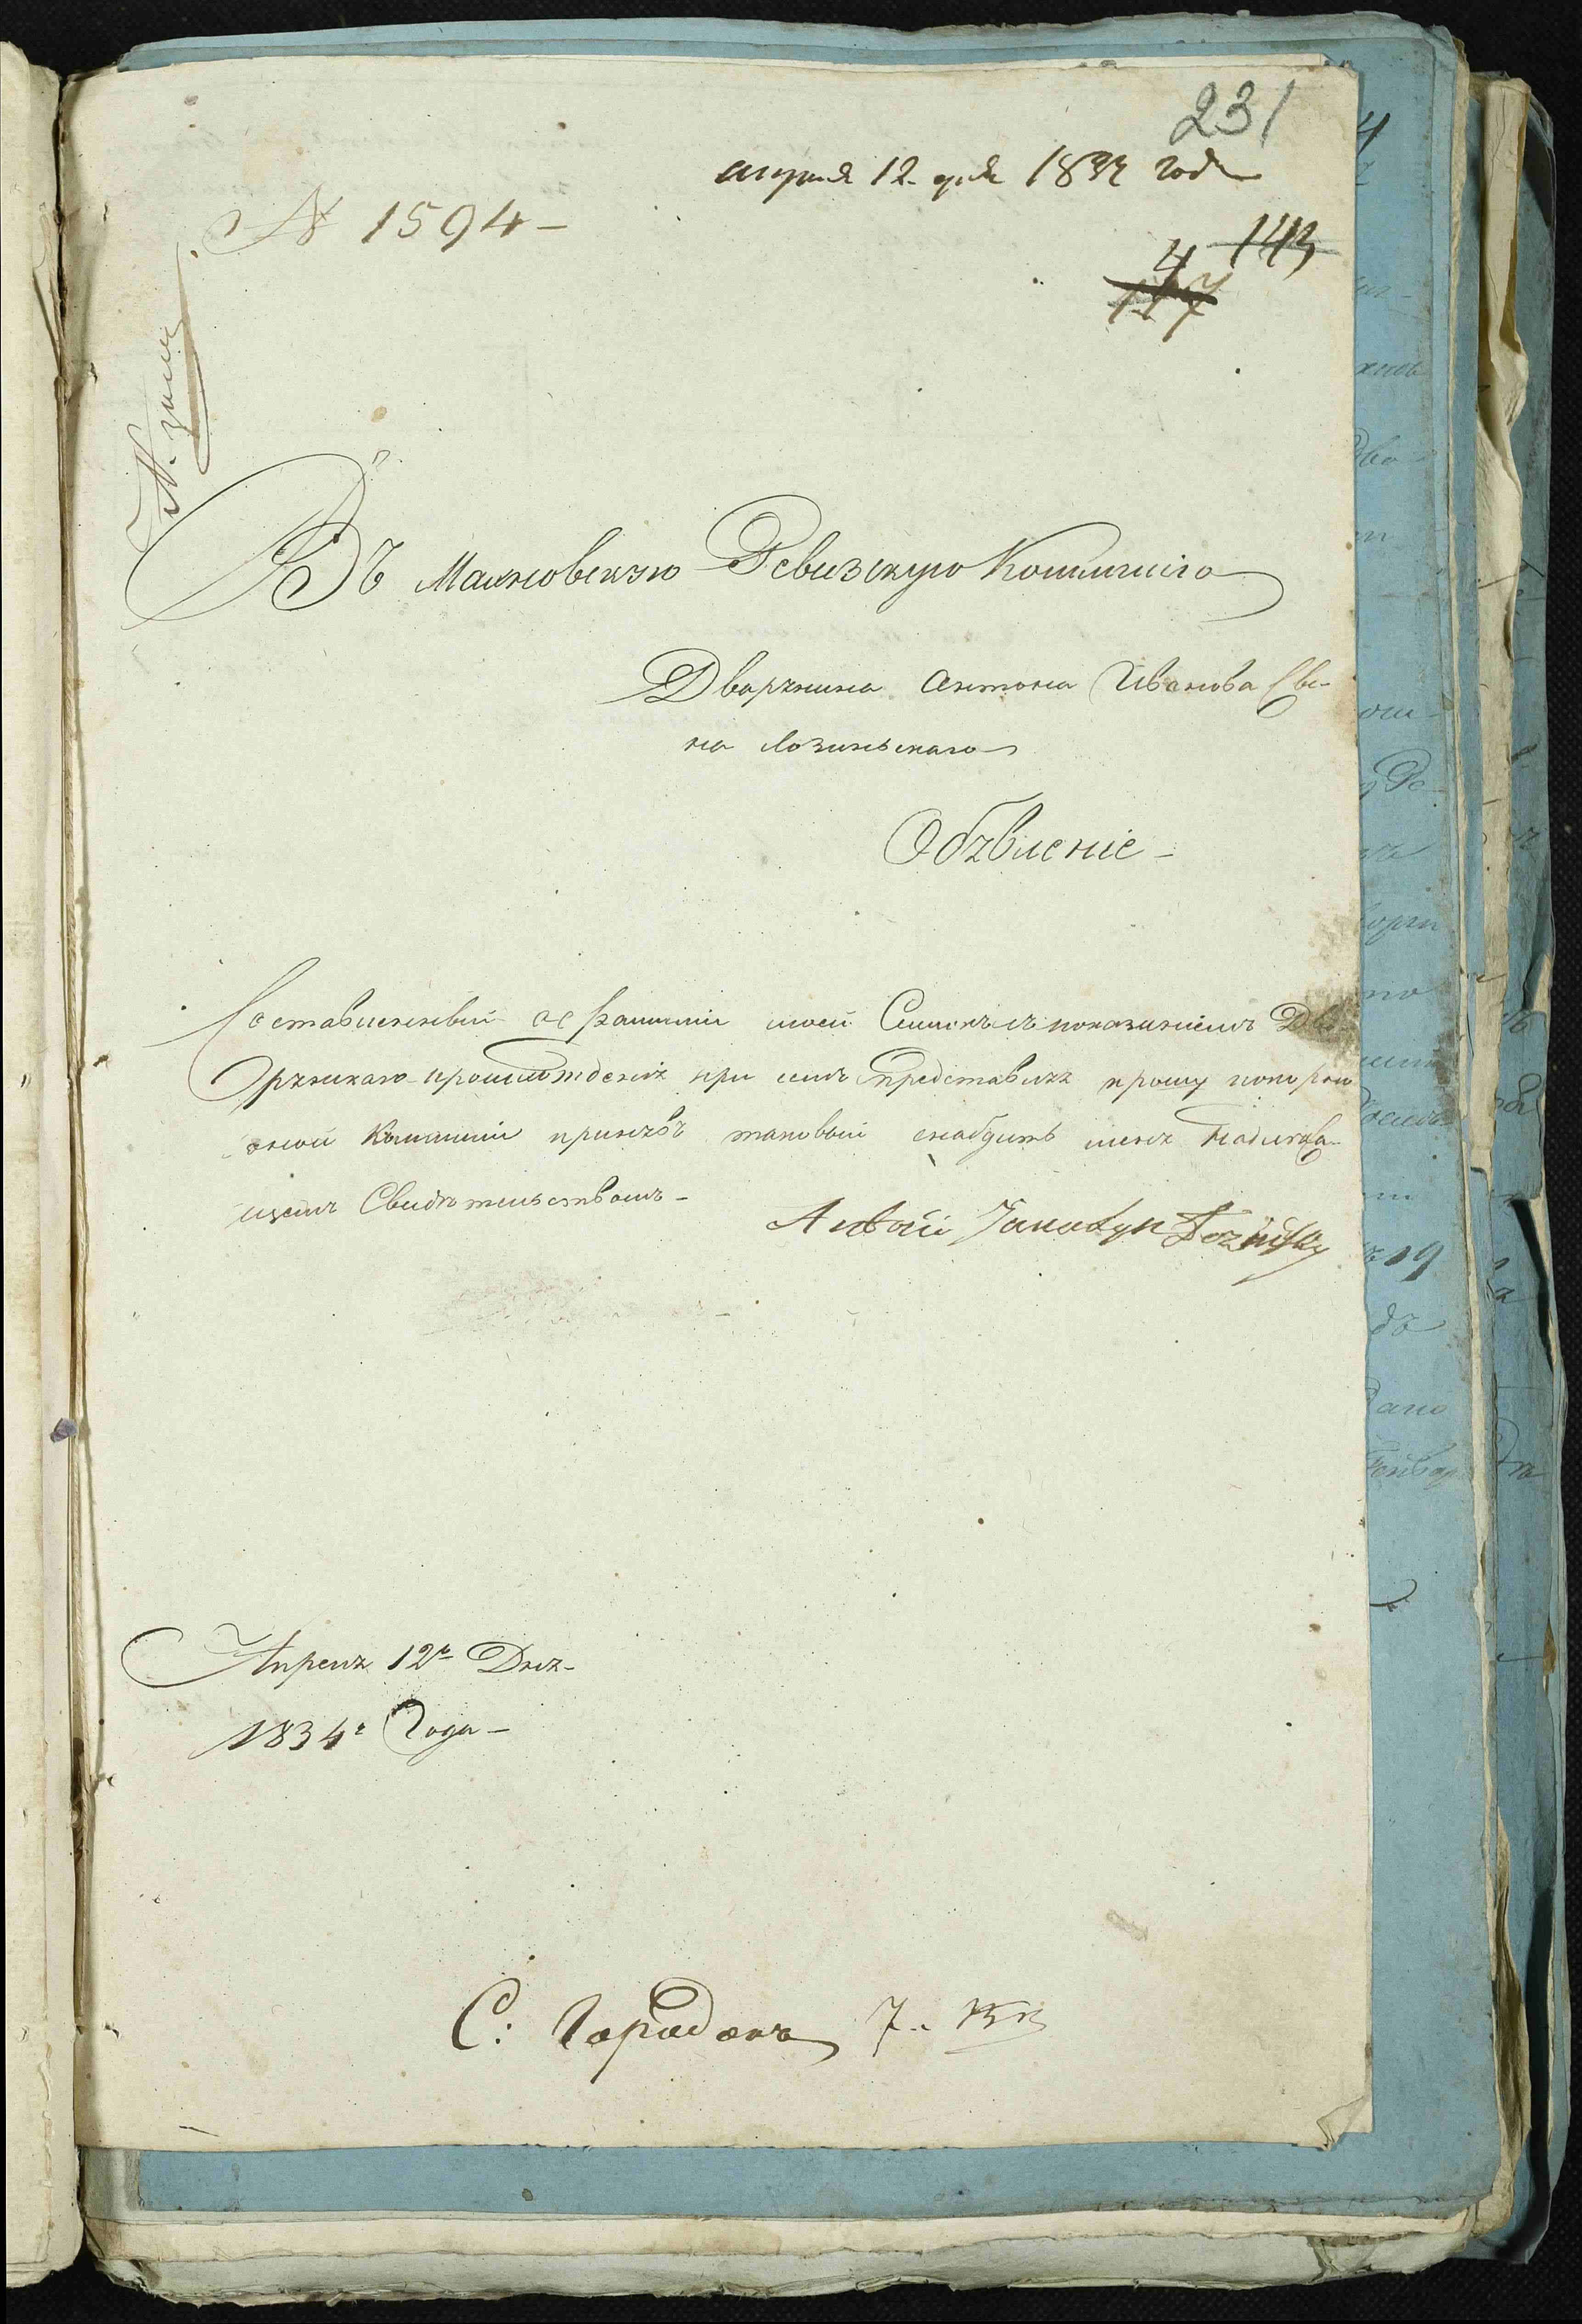 231
апреля 12. дня 1834 года
№ 1594-
143
4
117
Въ Махновскую Ревизскую Коммисію
Дворянина Антона Иванова Сы-
на Лозинскаго
Обявленіе-
Составленный о Фамиліи моей Списокъ съ показаніемъ Дво
рянскаго происхожденія при семъ представляя прошу покорно
оной Коммисіи принявъ таковый снабдить меня Надлежа-
щимъ Свидѣтельствомъ-
Антоній Łoziński
Апреля 12го Дня-
1834го Года-
С: Городокъ